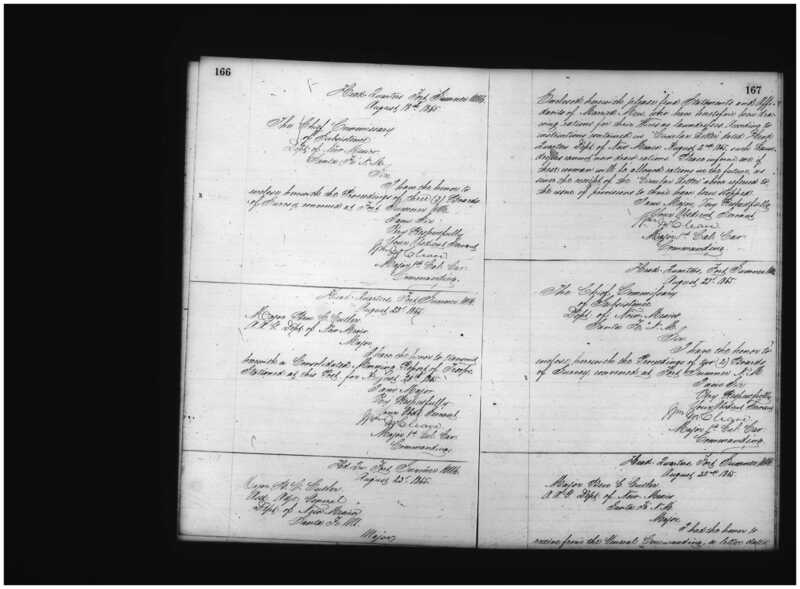 166
Head Quarters Fort Sumner N.M.
August 18th 1865
The Chief Commissary
of Subsistence
Dept. of New Mexico
Santa Fe N.M.
Sir
I have the honor to
enclose herewith the Proceedings of three (3) Boards
of Survey, convened at Fort Sumner N.M.
I am Sir
Very Respectfully
Your Obedient Servant
Wm McCleave
Major 1st Cal. Cav.
Commanding.
Head Quarters Fort Sumner N.M.
August 23d 1865
Major Ben C. Cutler
A.A.G. Dept. of New Mexico
Major
I have the honor to
herewith a Consolidated Morning Report of Troops
Stationed at this Post for August 20th 1865
I am Major
Very Respectfully
Your Obdt. Servant
Wm McCleave
Major 1st Cal. Cav.
Commanding.
Hd. Qrs. Fort Sumner N.M.
August 23d 1865
Cutler
General
Dept. of New Mexico
Santa Fe
Major
167
Enclosed herewith please find Statements and Affi-
davits of Married Men, who have heretofore been draw-
ing rations for their Wives as laundresses. According to
instructions contained in Circular Letter dated Head
Quarters Dept. of New Mexico August 2nd 1865, such laun-
dresses cannot now draw rations. Please inform me if
these women will be allowed rations in the future, as
since the receipt of the Circular Letter above referred to
the issue of provisions to them has been stopped.
I am Major, Very Respectfully
Your Obedient Servant
Wm McCleave
Major 1st Cal. Cav.
Commanding.
Head Quarters Fort Sumner N.M.
August 25th 1865
The Chief Commissary
of Subsistence
Dept. of New Mexico
Santa Fe N.M.
Sir
I have the honor to
enclose herewith the Proceedings of (2) Boards
of Survey, convened at Fort Sumner N.M.
I am Sir
Very Respectfully
Your Obedient Servant
Wm McCleave
Major 1st Cal. Cav.
Commanding.
Head Quarters Fort Sumner N.M.
August 25th 1865
Major Ben C. Cutler
A.A.G. Dept. of New Mexico
Santa Fe N.M.
Major
I had the honor to
receive from the General Commanding, a letter dated